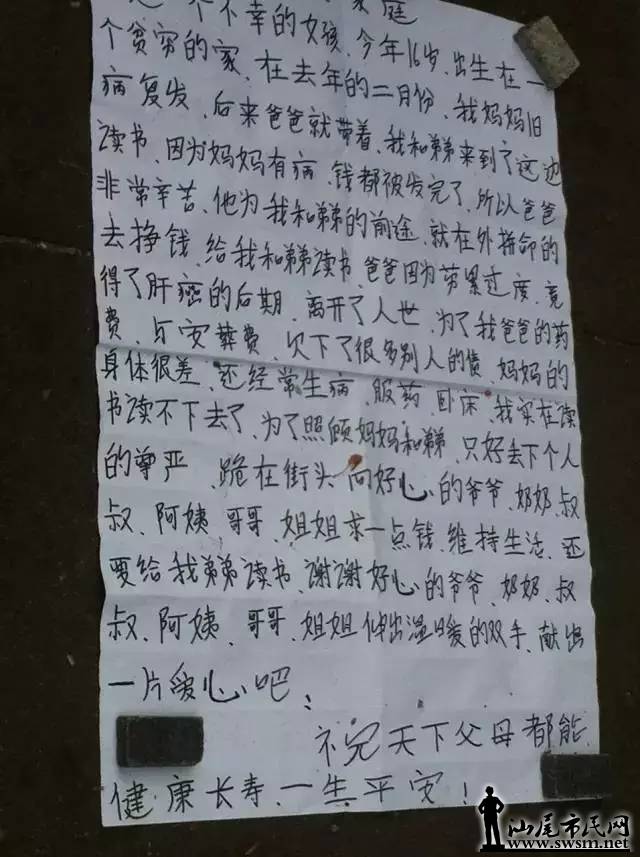 个不幸的女孩、今年16岁、出生在一
个贫穷的家、在去年的二月份、我妈妈旧
病复发、后来爸爸就带着、我和弟弟来到了这边
读书、因为妈妈有病、钱都被发完了、所以爸爸
非常辛苦、他为我和弟弟的前途、就在外拼命的
去挣钱、给我和弟弟读书、爸爸因为劳累过度、竟
得了肝癌的后期、离开了人世、为了我爸爸的药
费、与安葬费、欠下了很多别人的债、妈妈的
身体很差、还经常生病、服药、卧床、我实在读
书读不下去了、为了照顾妈妈和弟弟、只好去下个人
的尊严、跪在街头向好心的爷爷、奶奶、叔
叔、阿姨、哥哥、姐姐求一点钱、维持生活、还
要给我弟弟读书、谢谢好心的爷爷、奶奶、叔
叔、阿姨、哥哥、姐姐伸出温暖的双手、献出
一片爱心吧；
天下父母都能
健康长寿、一生平安！
汕尾市民网
www.swsm.net